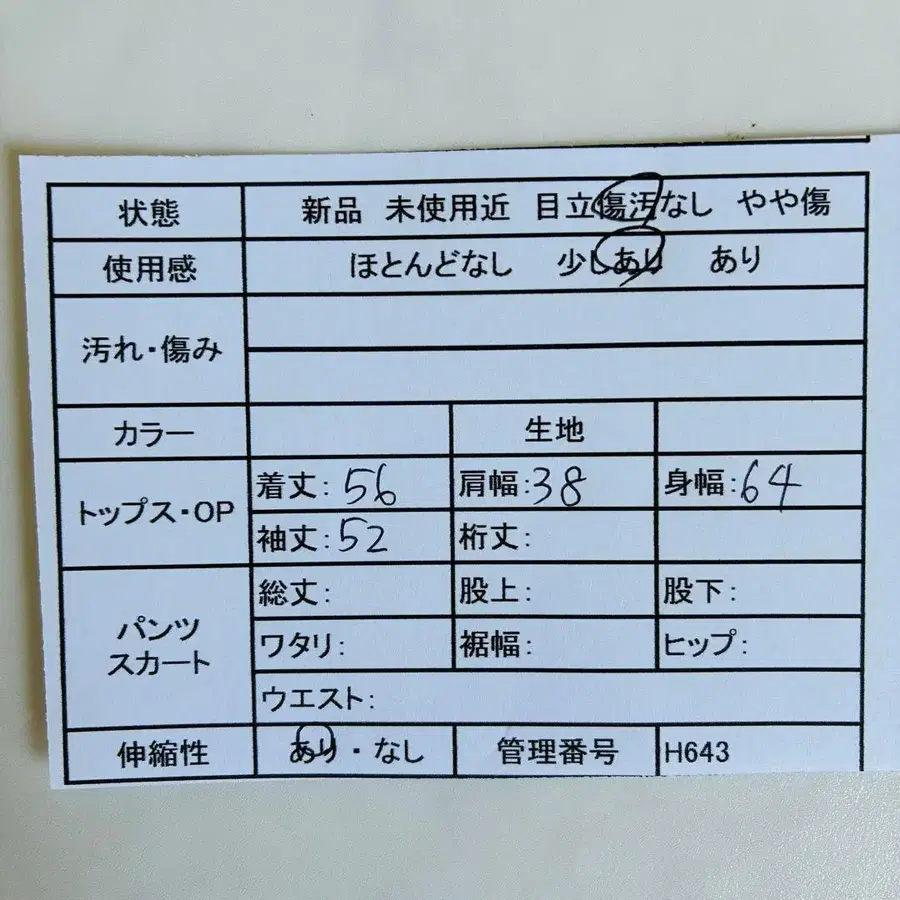 状態 新品 未使用近 目立傷汚なし やや傷
使用感 ほとんどなし 少しあり あり
汚れ・傷み
カラー 生地
トップス・OP 着丈:56 肩幅:38 身幅:64
袖丈:52 裄丈:
パンツ
スカート
総丈: 股上: 股下:
ワタリ: 裾幅: ヒップ:
ウエスト:
伸縮性 あり・なし 管理番号 H643